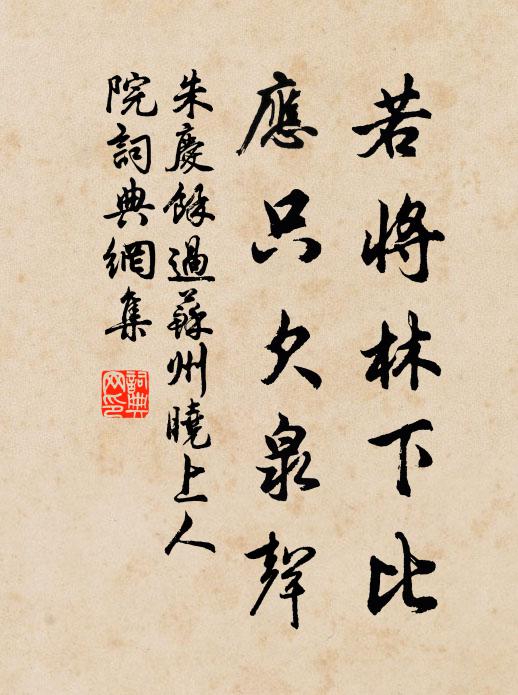 若將林下比
應只欠泉聲
朱慶餘過蘇州曉上人
院詞典網集
詞典
网印